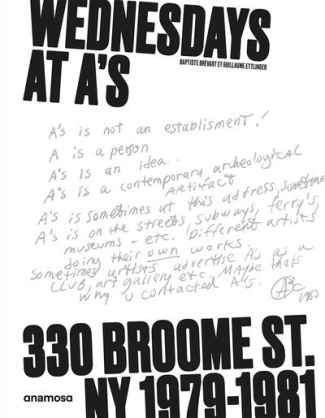 WEDNESDAYS
AT A'S
BAPTISTE BRÉVART ET GUILLAUME ETTLINGER
A's is not an establisment!
A is a person
A's is an idea.
A's is a contemporary archeological
Artifact
A's is sometimes at this address, sometimes
A's is on the streets, subways, ferry's,
museums - etc. Different artists
doing their own works.
sometimes artists advertise A's as a
CLUB, art gallery, etc, MAYbe thats
Why u contacted A's.
1980
330 BROOME ST.
anamosa
NY 1979-1981